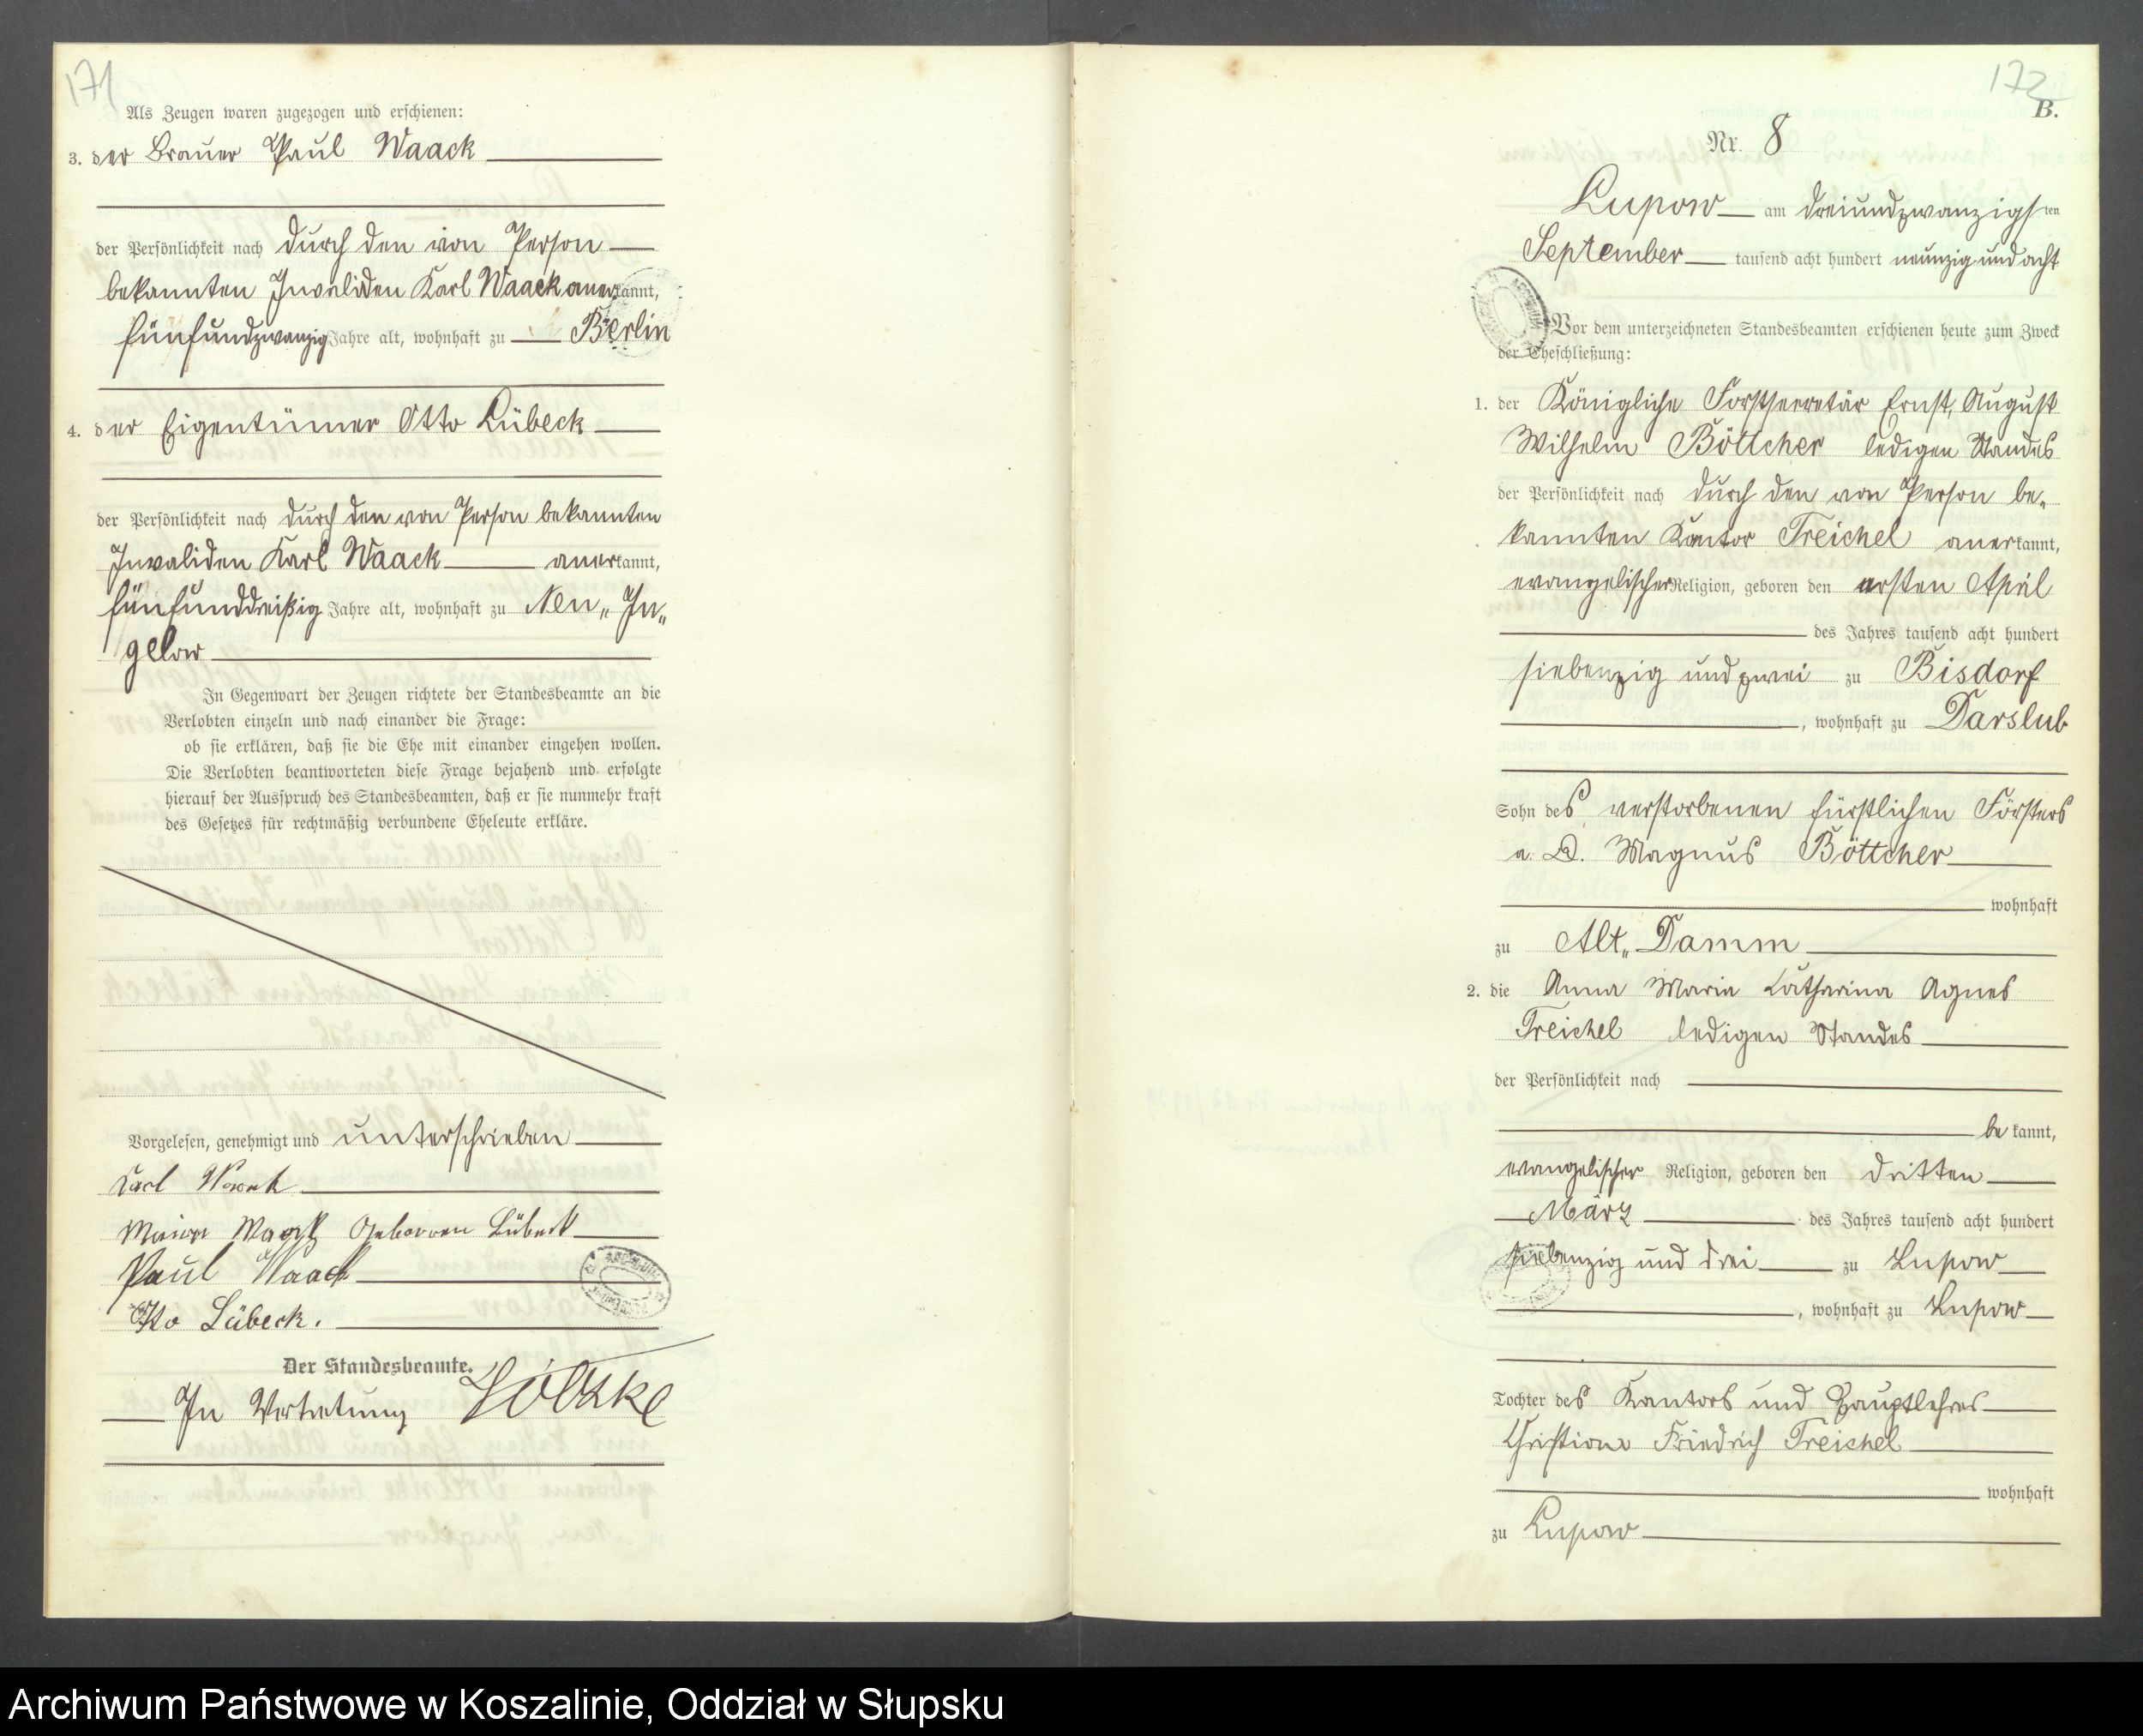 171
Als Zeugen waren zugezogen und erschienen:
3. der Brauer Paul Waack
der Persönlichkeit nach durch den von Person
bekannten Invaliden Karl Waack anerkannt,
fünfundzwanzig Jahre alt, wohnhaft zu Berlin
4. der Eigentümer Otto Lübeck
der Persönlichkeit nach durch den von Person bekannten
Invaliden Karl Waack anerkannt,
fünfunddreißig Jahre alt, wohnhaft zu Neu„ Ju„
gelow
In Gegenwart der Zeugen richtete der Standesbeamte an die
Verlobten einzeln und nach einander die Frage:
ob sie erklären, daß sie die Ehe mit einander eingehen wollen.
Die Verlobten beantworteten diese Frage bejahend und erfolgte
hierauf der Ausspruch des Standesbeamten, daß er sie nunmehr kraft
des Gesetzes für rechtmäßig verbundene Eheleute erkläre.
Vorgelesen, genehmigt und unterschrieben
Karl Waack
Waack Geborren Lübeck
Paul Waack
Otto Lübeck.
Der Standesbeamte.
In Vertretung
172
B.
Nr. 8
Lupow am dreiundzwanzigsten
September tausend acht hundert neunzig und acht
Vor dem unterzeichneten Standesbeamten erschienen heute zum Zweck
der Eheschließung:
1. der Königliche Forstsecretär Ernst, August
Wilhelm Böttcher ledigen Standes
der Persönlichkeit nach durch den von Person be„
kannten Kantor Treichel anerkannt,
evangelischer Religion, geboren den ersten April
des Jahres tausend acht hundert
siebenzig und zwei zu Bisdorf
, wohnhaft zu Darslub
Sohn des verstorbenen fürstlichen Försters
a. D. Magnus Böttcher
wohnhaft
zu Alt„ Damm
2. die Anna Maria Katharina Agnes
Treichel ledigen Standes
der Persönlichkeit nach
be kannt,
evangelischer Religion, geboren den dritten
März des Jahres tausend acht hundert
siebenzig und drei zu Lupow
, wohnhaft zu Lupow
Tochter des Kantors und Hauptlehrers
Christian Friedrich Treichel
wohnhaft
zu Lupow
Archiwum Państwowe w Koszalinie, Oddział w Słupsku